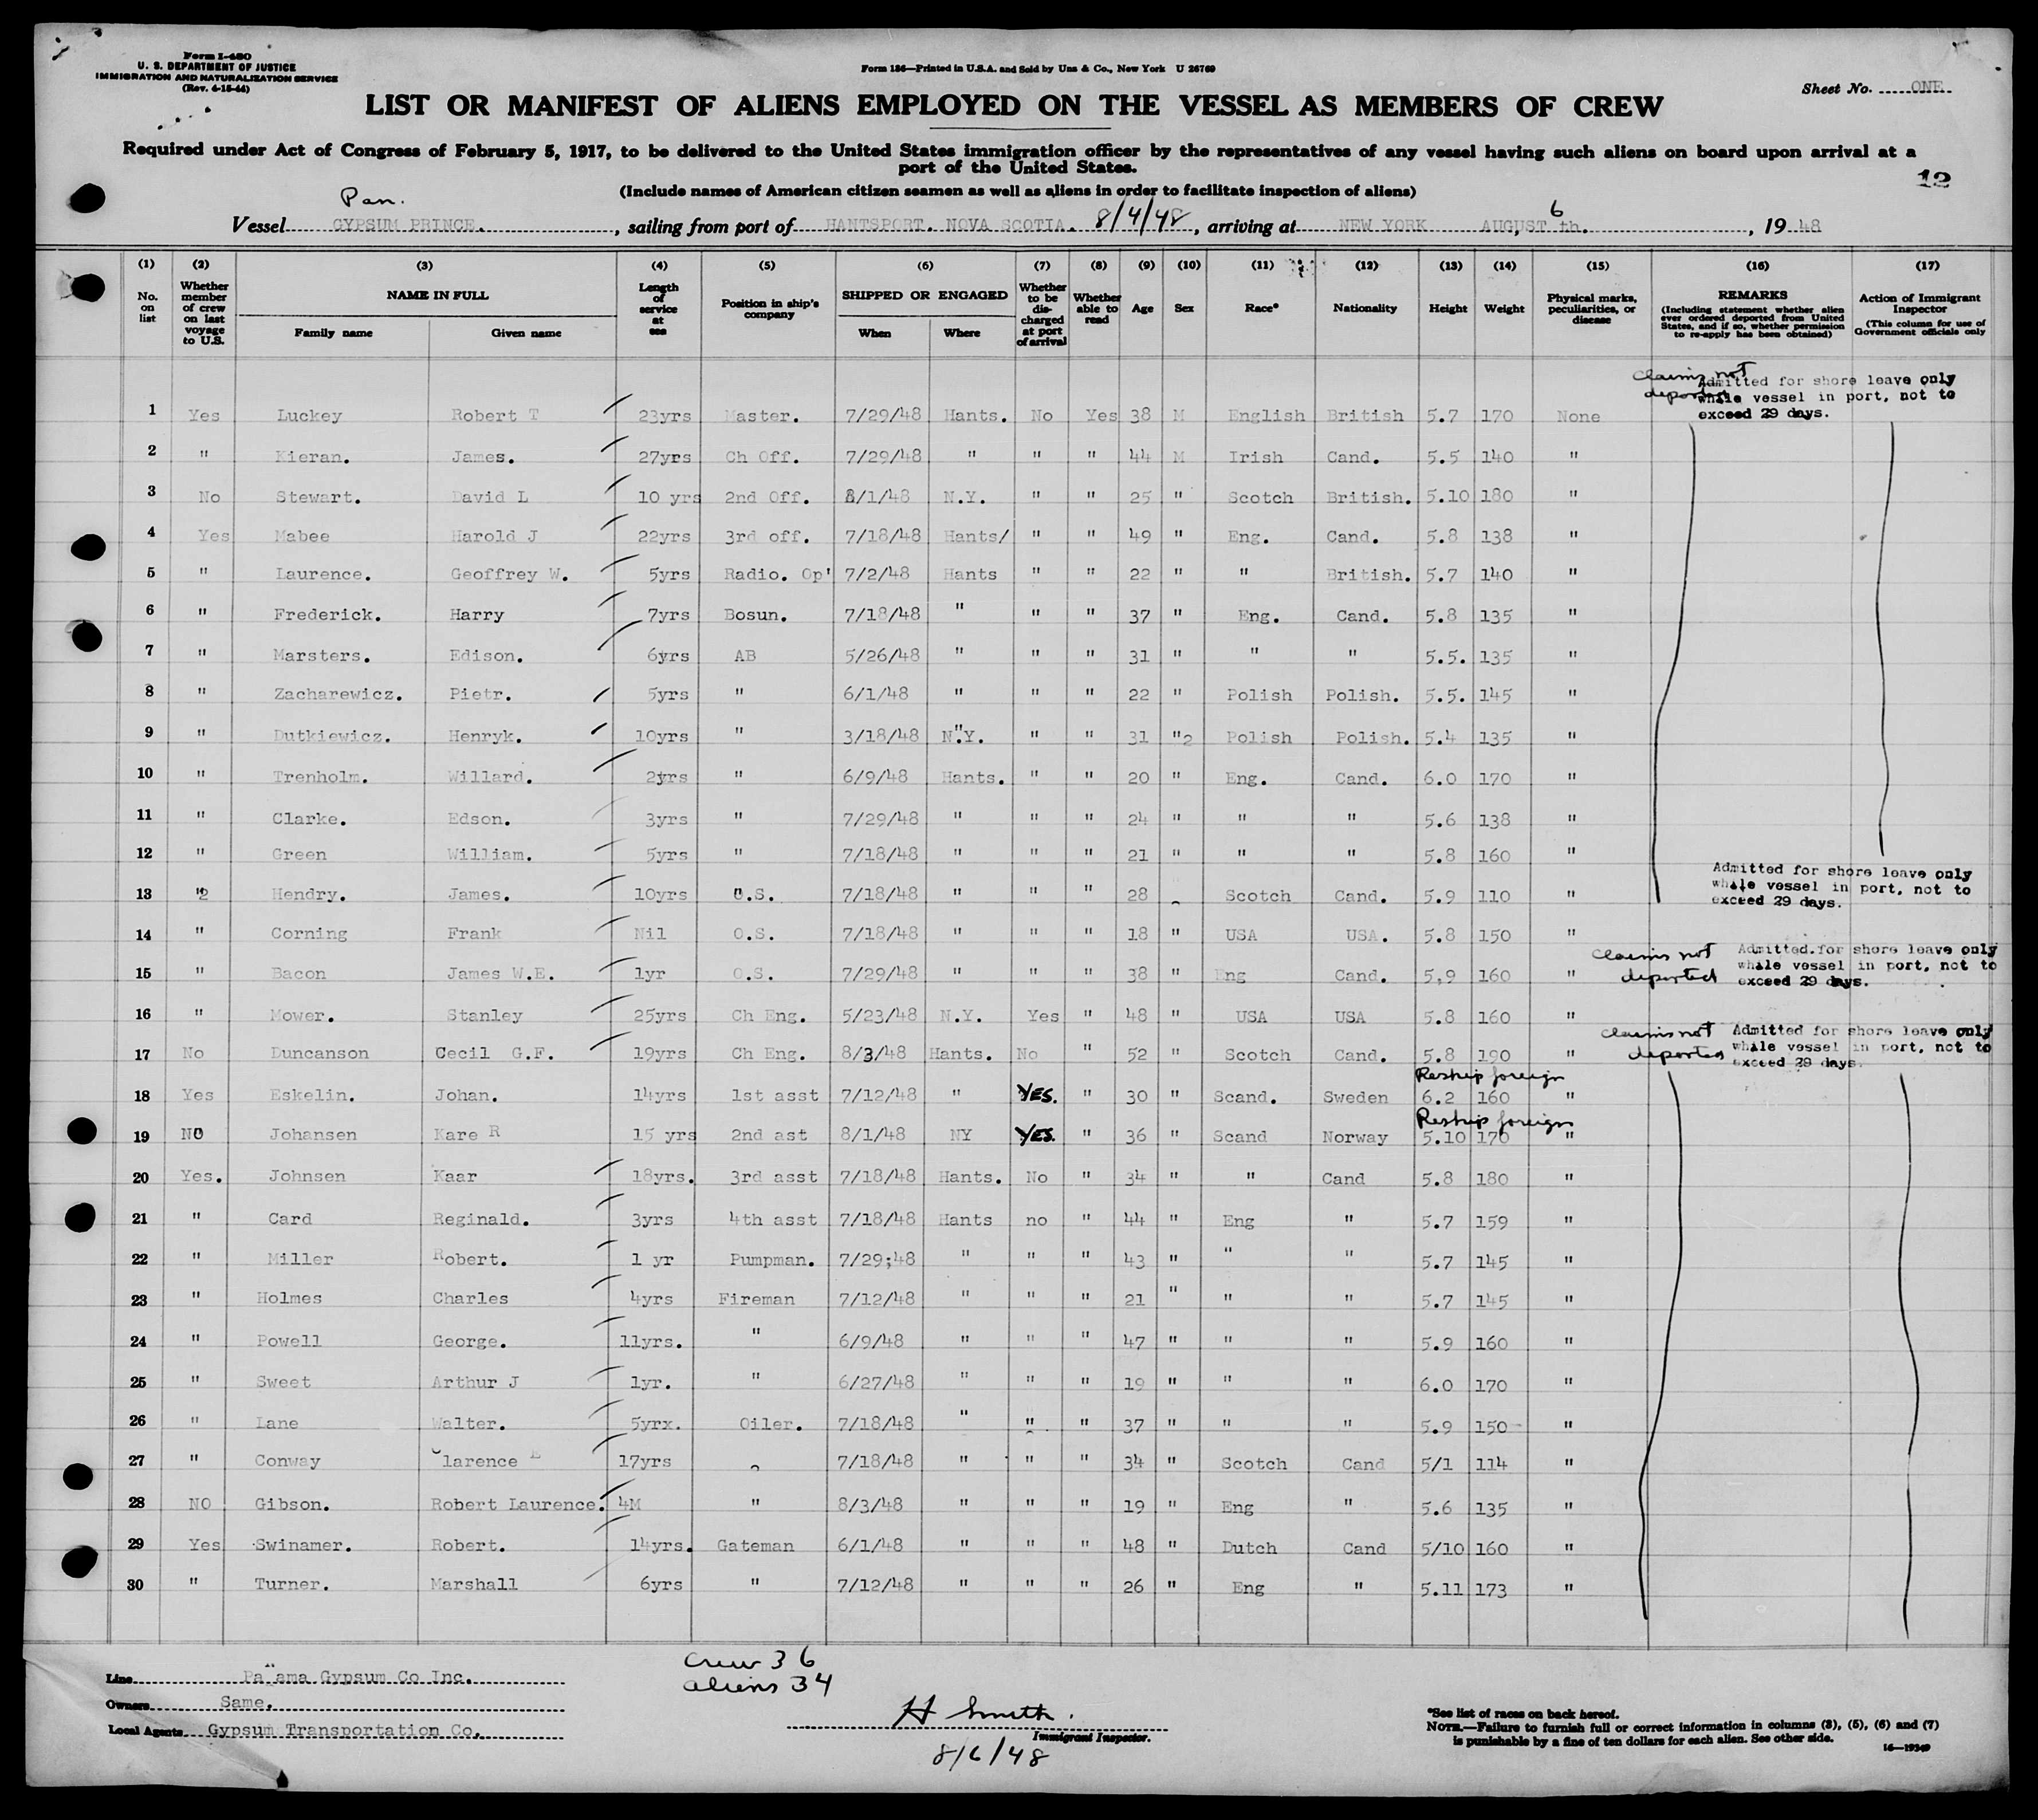 Form I-480
U. S. DEPARTMENT OF JUSTICE
IMMIGRATION AND NATURALIZATION SERVICE
(Rev. 4-15-44)
Form 186—Printed in U.S.A. and Sold by Unz & Co., New York U 26769
Sheet No. ONE
LIST OR MANIFEST OF ALIENS EMPLOYED ON THE VESSEL AS MEMBERS OF CREW
Required under Act of Congress of February 5, 1917, to be delivered to the United States immigration officer by the representatives of any vessel having such aliens on board upon arrival at a
port of the United States.
(Include names of American citizen seamen as well as aliens in order to facilitate inspection of aliens)
12
Pan.
Vessel GYPSUM PRINCE. , sailing from port of HANTSPORT. NOVA SCOTIA. 8/4/48 , arriving at NEW YORK AUGUST 6 th. , 19 48
(1) (2) (3) (4) (5) (6) (7) (8) (9) (10) (11) (12) (13) (14) (15) (16) (17)
No. on list
Whether member of crew on last voyage to U.S.
NAME IN FULL
Family name
Given name
Length of service at sea
Position in ship's company
SHIPPED OR ENGAGED
When
Where
Whether to be discharged at port of arrival
Whether able to read
Age
Sex
Race*
Nationality
Height
Weight
Physical marks, peculiarities, or disease
REMARKS
(Including statement whether alien ever ordered deported from United States, and if so, whether permission to re-apply has been obtained)
Action of Immigrant Inspector
(This column for use of Government officials only
claims not deported
Admitted for shore leave only
while vessel in port, not to
exceed 29 days.
1 Yes Luckey Robert T 23yrs Master. 7/29/48 Hants. No Yes 38 M English British 5.7 170 None
2 " Kieran. James. 27yrs Ch Off. 7/29/48 " " " 44 M Irish Cand. 5.5 140 "
3 No Stewart. David L 10 yrs 2nd Off. 8/1/48 N.Y. " " 25 " Scotch British. 5.10 180 "
4 Yes Mabee Harold J 22yrs 3rd off. 7/18/48 Hants/ " " 49 " Eng. Cand. 5.8 138 "
5 " Laurence. Geoffrey W. 5yrs Radio. Op' 7/2/48 Hants " " 22 " " British. 5.7 140 "
6 " Frederick. Harry 7yrs Bosun. 7/18/48 " " " 37 " Eng. Cand. 5.8 135 "
7 " Marsters. Edison. 6yrs AB 5/26/48 " " " 31 " " " 5.5. 135 "
8 " Zacharewicz. Pietr. 5yrs " 6/1/48 " " " 22 " Polish Polish. 5.5. 145 "
9 " Dutkiewicz. Henryk. 10yrs " 3/18/48 N.Y. " " 31 "2 Polish Polish. 5.4 135 "
10 " Trenholm. Willard. 2yrs " 6/9/48 Hants. " " 20 " Eng. Cand. 6.0 170 "
11 " Clarke. Edson. 3yrs " 7/29/48 " " " 24 " " " 5.6 138 "
12 " Green William. 5yrs " 7/18/48 " " " 21 " " " 5.8 160 "
Admitted for shore leave only
while vessel in port, not to
exceed 29 days.
13 "2 Hendry. James. 10yrs O.S. 7/18/48 " " " 28 Scotch Cand. 5.9 110 "
14 " Corning Frank Nil O.S. 7/18/48 " " " 18 " USA USA. 5.8 150 "
claims not deported
Admitted for shore leave only
while vessel in port, not to
exceed 29 days.
15 " Bacon James W.E. 1yr O.S. 7/29/48 " " " 38 " Eng Cand. 5,9 160 "
16 " Mower. Stanley 25yrs Ch Eng. 5/23/48 N.Y. Yes " 48 " USA USA 5.8 160 "
claims not deported
Admitted for shore leave only
while vessel in port, not to
exceed 29 days.
17 No Duncanson Cecil G.F. 19yrs Ch Eng. 8/3/48 Hants. No " 52 " Scotch Cand. 5.8 190 "
Reship foreign
18 Yes Eskelin. Johan. 14yrs 1st asst 7/12/48 " YES. " 30 " Scand. Sweden 6.2 160 "
Reship foreign
19 NO Johansen Kare R 15 yrs 2nd ast 8/1/48 NY YES. " 36 " Scand Norway 5.10 170 "
20 Yes. Johnsen Kaar 18yrs. 3rd asst 7/18/48 Hants. No " 34 " " Cand 5.8 180 "
21 " Card Reginald. 3yrs 4th asst 7/18/48 Hants no " 44 " Eng " 5.7 159 "
22 " Miller Robert. 1 yr Pumpman. 7/29;48 " " " 43 " " " 5.7 145 "
23 " Holmes Charles 4yrs Fireman 7/12/48 " " " 21 " " " 5.7 145 "
24 " Powell George. 11yrs. " 6/9/48 " " " 47 " " " 5.9 160 "
25 " Sweet Arthur J 1yr. " 6/27/48 " " " 19 " " " 6.0 170 "
26 " Lane Walter. 5yrx. Oiler. 7/18/48 " " " 37 " " " 5.9 150 "
27 " Conway Clarence E 17yrs 7/18/48 " " " 34 " Scotch Cand 5/1 114 "
28 NO Gibson. Robert Laurence. 4M " 8/3/48 " " " 19 " Eng " 5.6 135 "
29 Yes Swinamer. Robert. 14yrs. Gateman 6/1/48 " " " 48 " Dutch Cand 5/10 160 "
30 " Turner. Marshall 6yrs " 7/12/48 " " " 26 " Eng " 5.11 173 "
Line Panama Gypsum Co Inc.
Owners Same.
Local Agents Gypsum Transportation Co.
Crew 36
aliens 34
H Smith.
Immigrant Inspector.
8/6/48
*See list of races on back hereof.
NOTE.—Failure to furnish full or correct information in columns (3), (5), (6) and (7)
is punishable by a fine of ten dollars for each alien. See other side.
16—19349